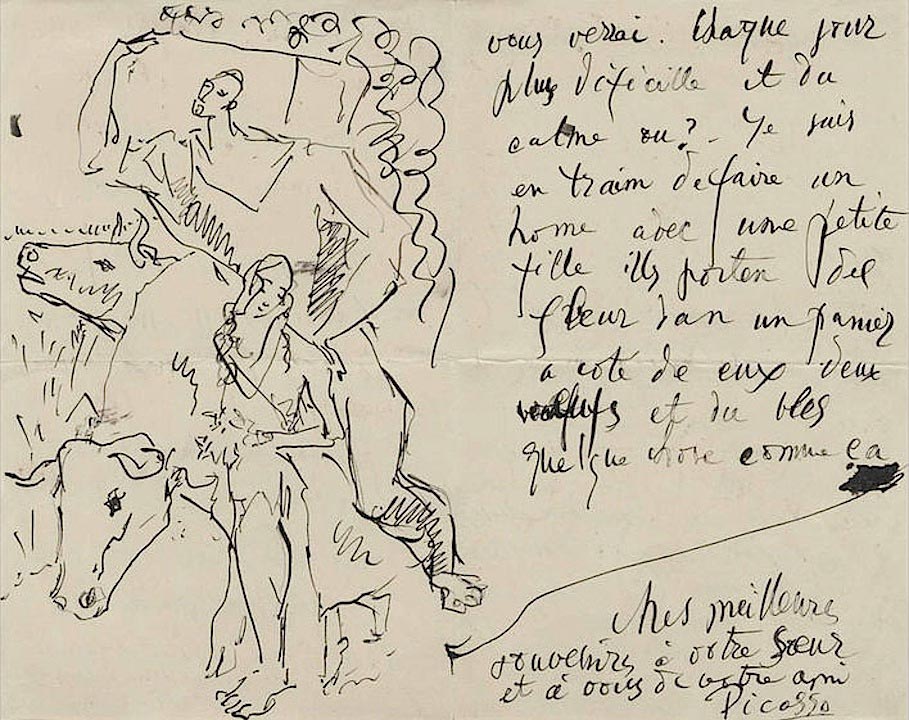 vous verrai. Chaque jour
plus dificille et du
calme ou? - Je suis
en traim de faire un
home avec une petite
fille ills porten del
fleur dan un panier
a coté de eux deux
et du bles
quelque chose comme ça
Mes meilleurs
souvenirs à votre Sœur
et à vous de votre ami
Picasso